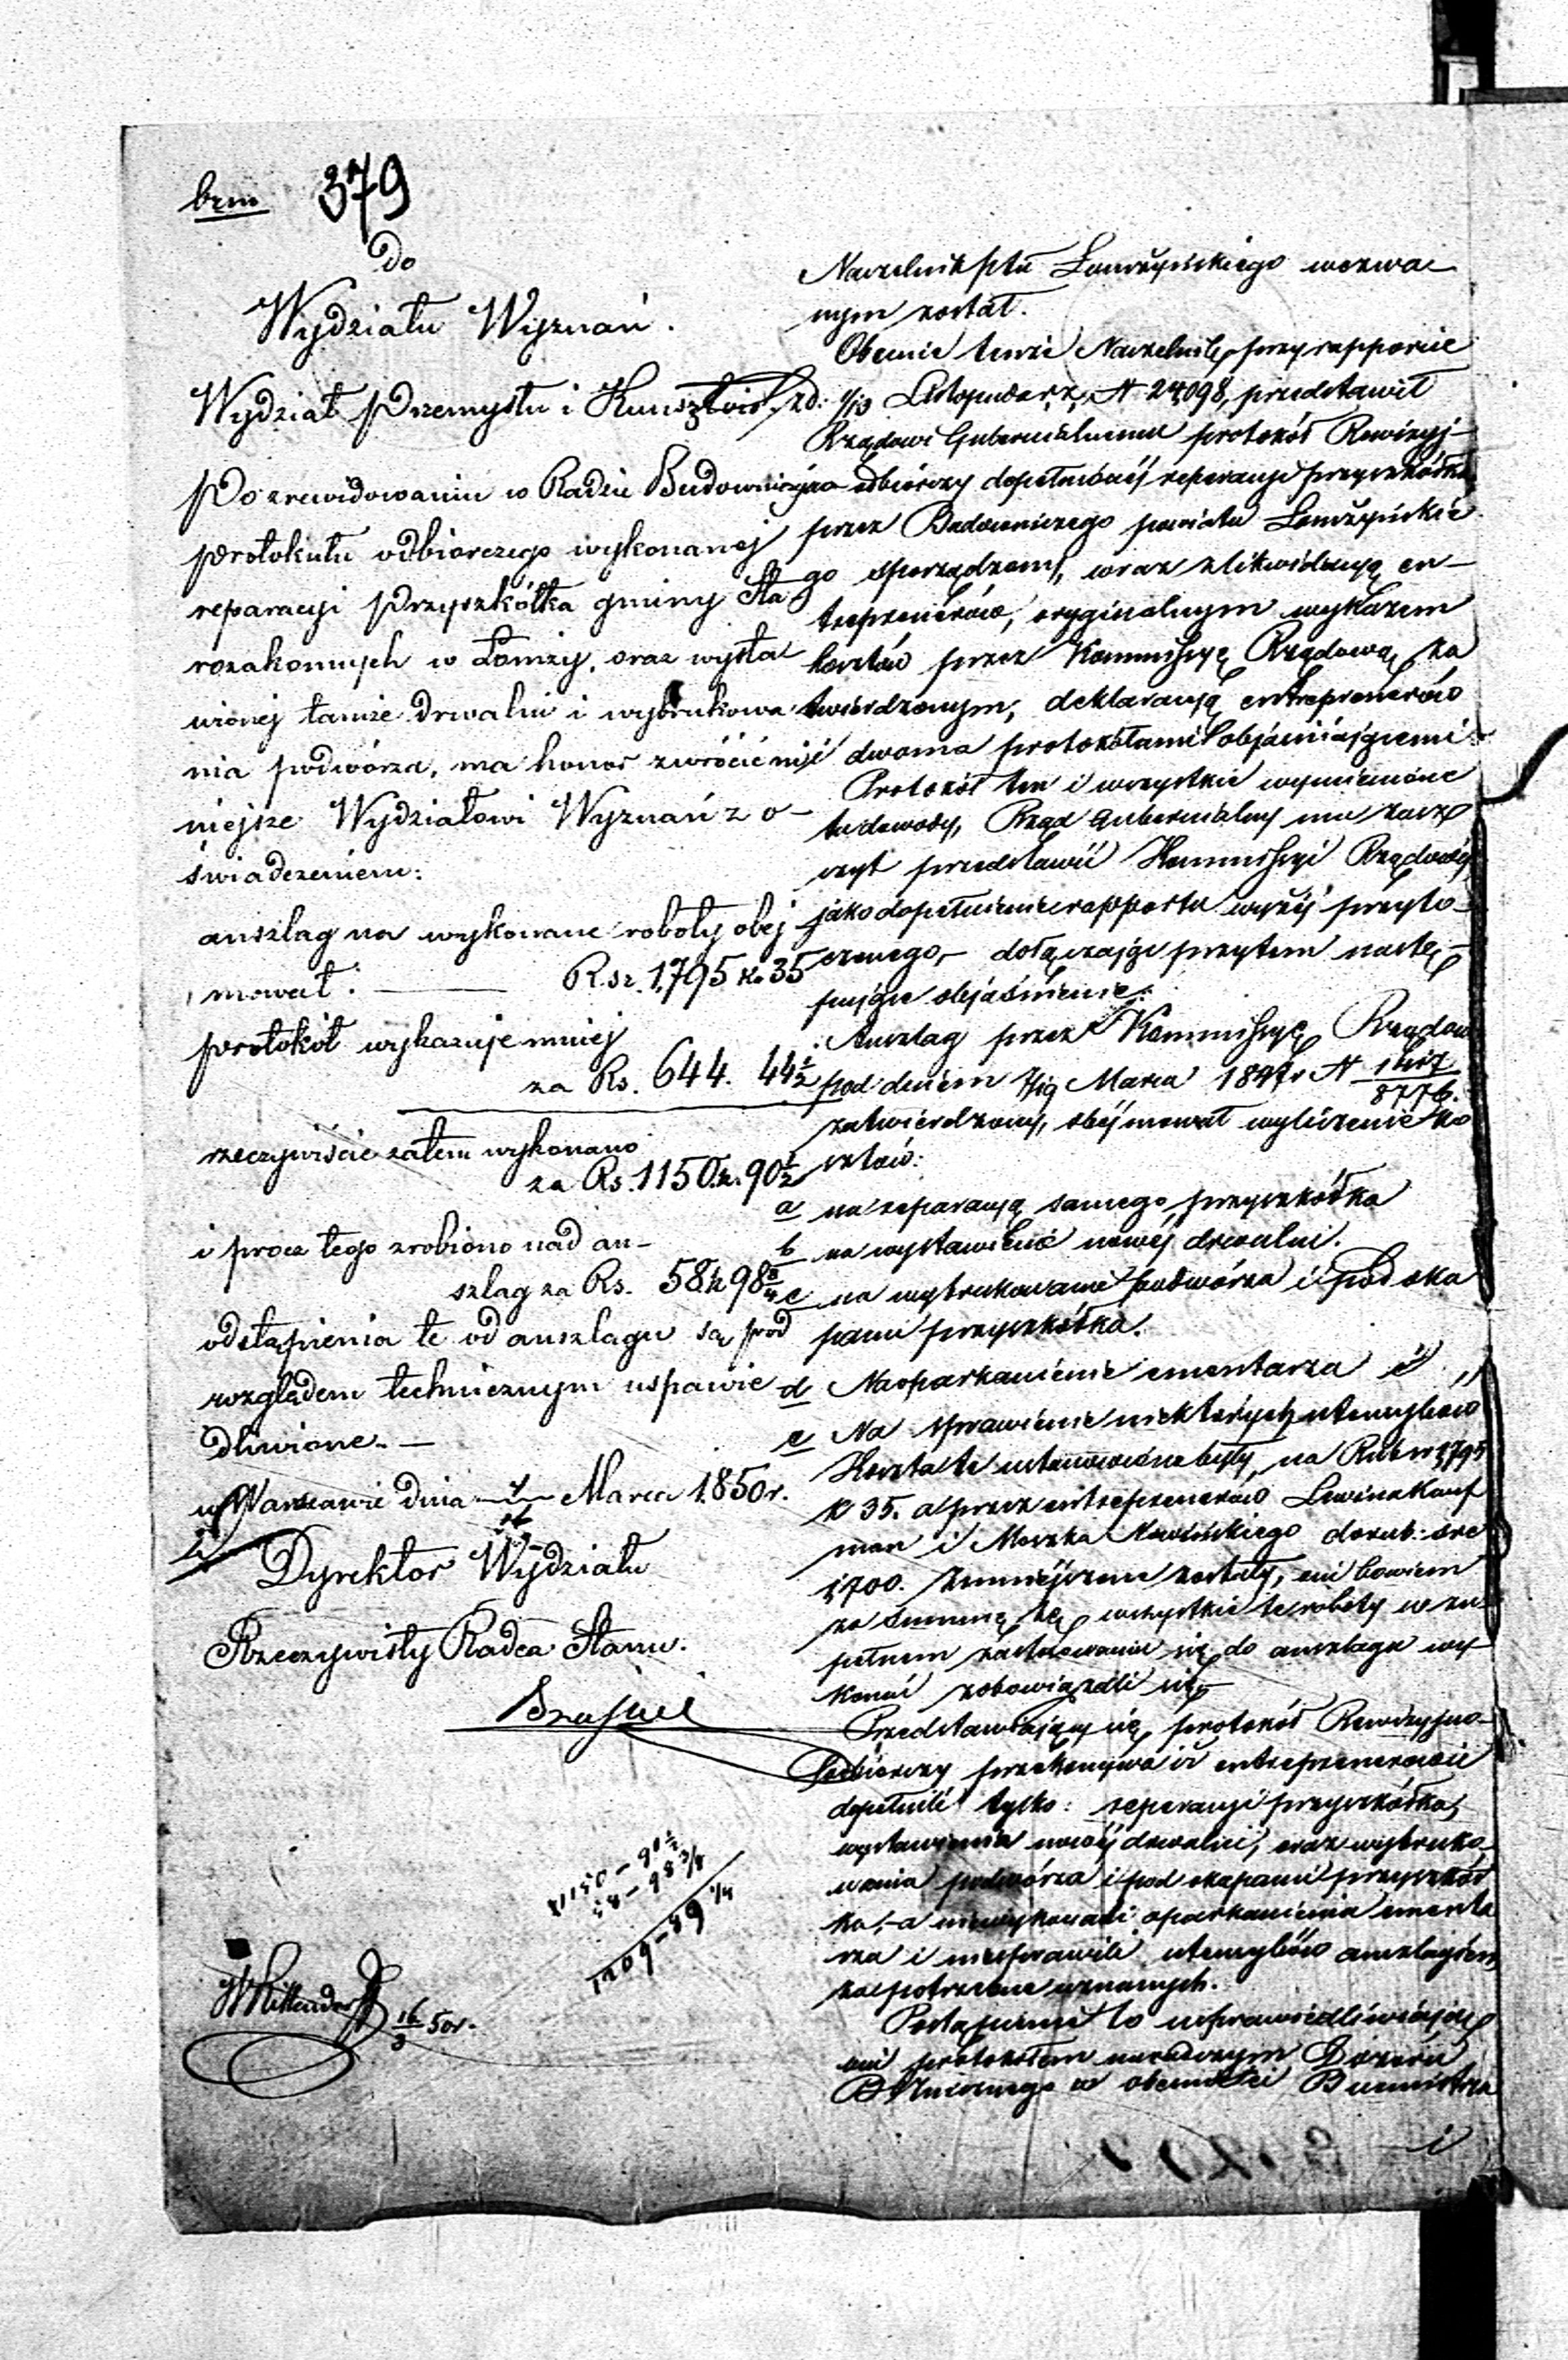 brm 379
Do
Wydziału Wyznań.
Wydział Przemysłu i Kunsztów.
Po zrewidowaniu w Radzie Budowniczej
protokułu odbiorczego wykonanej
reparacyi Przyszkółka gminy Sta
rozakonnych w Łomży, oraz wysta
wionej tamże drwalni i wybrukowa
nia podwórza, ma honor zwrócić ni
niejsze Wydziałowi Wyznań z o-
świadczeniem:
anszlag na wykonane roboty obej
mował: Rsr. 1,795 k. 35
protokół wykazuje mniej
za Rs. 644. 44½
rzeczywiście zatem wykonano
za Rs. 1150 k. 90½
i procz tego zrobiono nad an-
szlag za Rs. 58 k 98¾
odstąpienia te od anszlagu są pod
względem technicznym usprawie
dliwione. —
w Warszawie dnia Marca 1850 r.
Dyrektor Wydziału
Rzeczywisty Radca Stanu.
1150 – 90½
58 – 98¾
1209 – 89¼
16/3 50r.
Naczelnik ptu Łomżyńskiego wezwa-
nym został.
Obecnie tenże Naczelnik przy rapporcie
zd: 1/13 Listopada r. z. N 24,098, przedstawił
Rządowi Gubernialnemu protokół Rewizyj-
no odbiorczy dopełnionej reperacyi przyszkółka
przez Budowniczego powiatu Łomżyńskie
go sporządzony, wraz z likwidacyą en-
treprenerów, oryginalnym wykazem
kosztów przez Kommissyę Rządową za
twierdzonym, deklaracyą entreprenerów
i dwoma protokółami objaśniającemi.
Protokół ten i wszystkie wymienione
tu dowody, Rząd Gubernialny ma zasz
czyt przedstawić Kommissyi Rządowej
jako dopełnienie rapportu wyżej przyto-
czonego, – dołączając przytem nastę-
pujące objaśnienie:
Anszlag przez Kommissyę Rządow
pod dniem 7/19 Marca 1847 r N
zatwierdzony, obejmował wyliczenie ko
sztów:
a na reparacyą samego przyszkółka
b na wystawienie nowéj drwalni.
c na wybrukowanie podwórza i pod oka
pami przyszkółka.
d Na oparkanienie cmentarza i
e Na sprawienie niektórych utensyliów
Koszta te ustanowione były na Rub sr 1,795
k 35. a przez entreprenerów Lewina Kauf
man i Moszka Nowińskiego do rub: sre
1,700. zmniejszone zostały, oni bowiem
za summę tę wszystkie te roboty w zu
pełnem zastosowaniu się do anszlagu wy
konać zobowiązali się.
Przedstawiający się protokół Rewizyjno-
odbiorczy przekonywa iż entreprenerowie
dopełnili tylko: reperacyi przyszkółka,
wystawienia nowéj drwalni, oraz wybruko
wania podwórza i pod okapami przyszkół
ka, – a niewykonali oparkanienia cmenta
rza i niesprawili utensyliów anszlagiem
za potrzebne uznanych.
Postąpienie to usprawiedliwiają
oni protokółem naradczym Dozoru
Bóżniczego w obecności Burmistrza
i